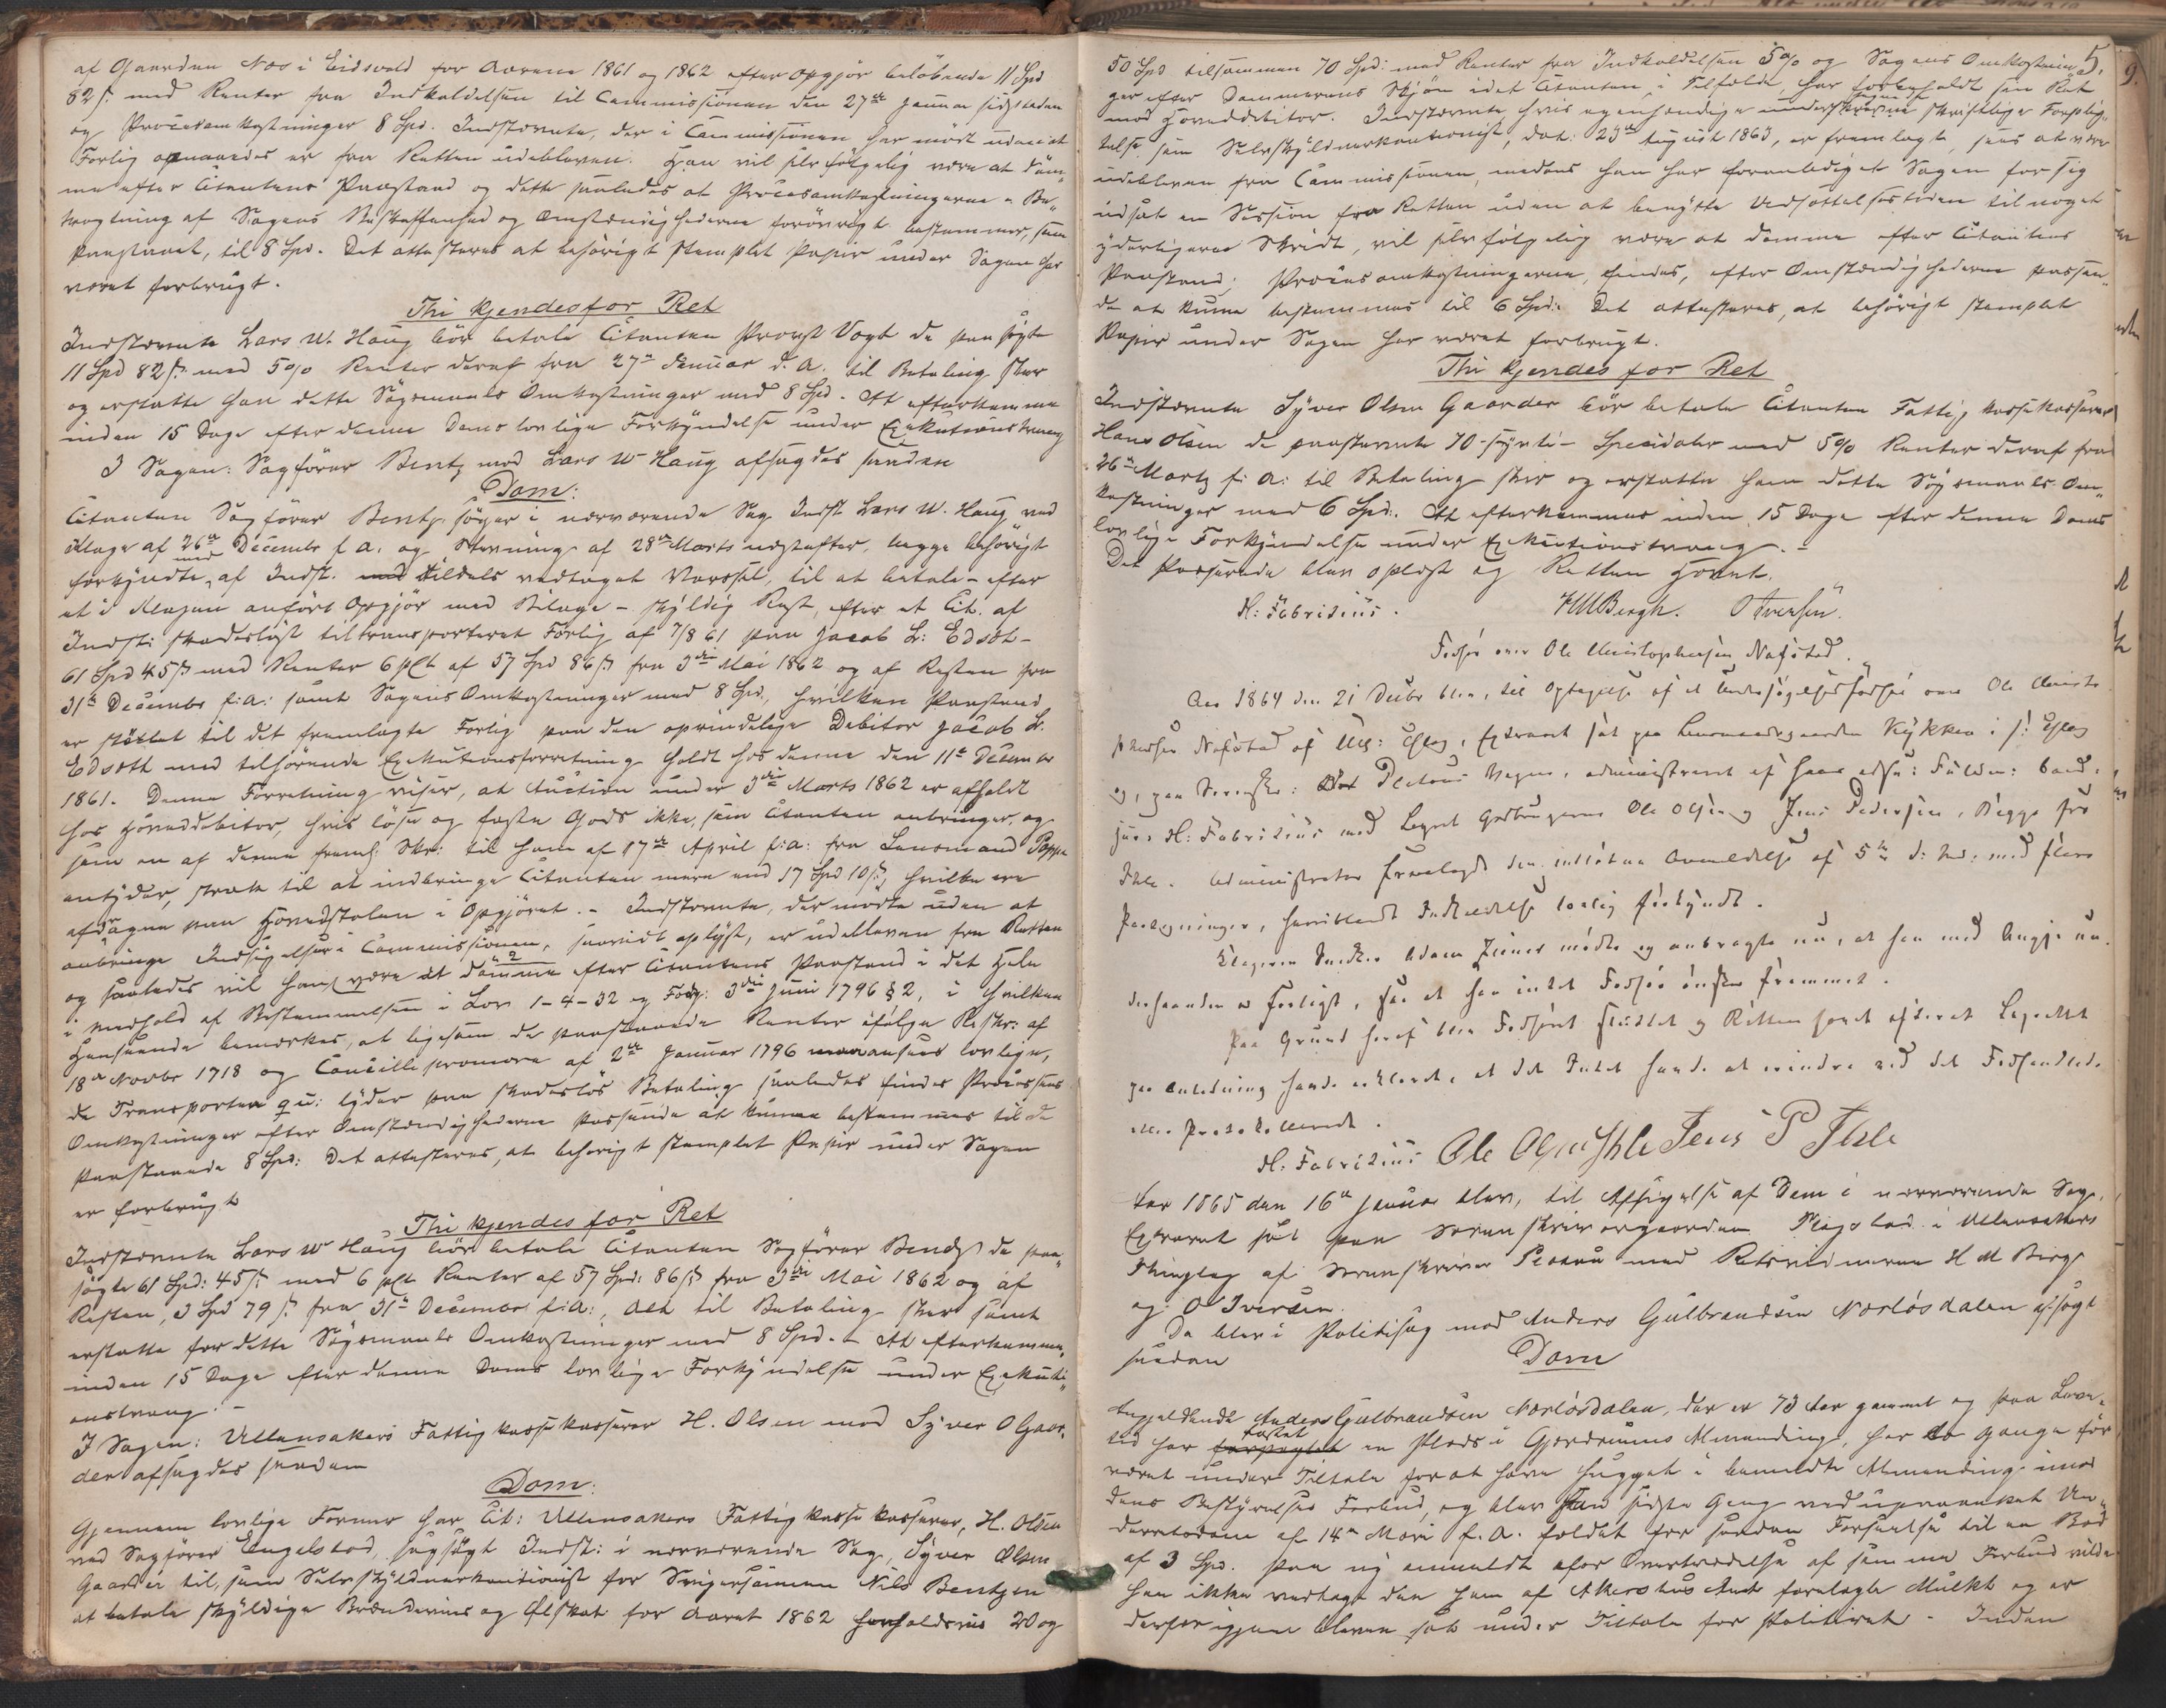 af Gaarden Næs i Eidsvold for Aarene 1861 og 1862 efter Opgjör belöbende 11 Spd
82 ß. med Renter fra Indkaldelsen til Commissionen den 27de Januar sidstleden
og Procesomkostninger 8 Spd. Indstevnte, der i Commissionen har mödt uden at
Forlig opnaaedes er fra Retten udebleven. Han vil selvfölgelig være at döm-
me efter Citantens Paastand og dette saaledes at Procesomkostningerne i Be-
tragtning af Sagens Beskaffenhed og Omstændighederne forövrigt bestemmes, som
paastaaet, til 8 Spd. Det attesteres at behörigt stemplet Papir under Sagen har
været forbrugt.
Thi kjendes for Ret
Indstevnte Lars W. Haug bör betale Citanten Provst Vogt de paasögte
11 Spd 82 ß. med 5% Renter deraf fra 27de Januar d. A. til Betaling skeer
og erstatte ham dette Sögsmaals Omkostninger med 8 Spd. At efterkomme
inden 15 Dage efter denne Doms lovlige Forkyndelse under Exekutionstvang
I Sagen: Sagförer Bentz mod Lars W. Haug afsagdes saadan
Dom:
Citanten Sagförer Bentz söger i nærværende Sag Indst. Lars W. Haug ved
Klage af 26de Decembr f. A. og Stevning af 28de Marts næstefter, begge behörigt
forkyndte, med af Indst. tildels vedtaget Varsel, til at betale - efter
et i Klagen anfört Opgjör med Bilage - skyldig Rest, efter et Cit. af
Indst. skadeslöst tiltransporteret Forlig af 7/8 61 paa Jacob L. Edsæth -
61 Spd 45 ß med Renter 6 pCt af 57 Spd 86 ß fra 3die Mai 1862 og af Resten fra
31te December f. A. samt Sagens Omkostninger med 8 Spd, hvilken Paastand
er stöttet til det fremlagte Forlig paa den oprindelige Debitor Jacob L.
Edsæth med tilhörende Exekutionsforretning holdt hos denne den 11te December
1861. Denne Forretning viser, at Auction under 3die Marts 1862 er afholdt
hos Hoveddebitor, hvis löse og faste Gods ikke, som Citanten anbringer, og
som en af denne freml. Skr. til ham af 17de April f. A. fra Lensmand Poppe
antyder, strak til at indbringe Citanten mere end 17 Spd 10 ß, hvilke ere
afdragne paa Hovedstolen i Opgjöret. - Indstevnte, der mödte uden at
anbringe Indsigelser i Commissionen, saavidt oplyst, er udebleven fra Retten
og saaledes vil han være at dömme efter Citantens Paastand i det Hele
i Medhold af Bestemmelsen i Lov 1-4-32 og Fordg. 3die Juni 1796 § 2, i hvilken
Henseende bemærkes, at ligesom de paastaaede Renter ifölge Reskr. af
18de Novbr 1718 og Cancellipromemoria af 2de Januar 1796 maa ansees lovlige,
da Transporten qu: lyder paa skadeslös Betaling saaledes findes Processens
Omkostninger efter Omstændighederne passende at kunne bestemmes til de
paastaaede 8 Spd. Det attesteres, at behörigt stemplet Papir under Sagen
er forbrugt
Thi kjendes for Ret
Indstevnte Lars W Haug bör betale Citanten Sagförer Bentz de paa-
sögte 61 Spd. 45 ß. med 6 pCt. Renter af 57 Spd. 86 ß fra 3die Mai 1862 og af
Resten, 3 Spd 79 ß. fra 31te December f. A., Alt til Betaling skeer samt
erstatte for dette Sögsmaals Omkostninger med 8 Spd. - At efterkomme
inden 15 Dage efter denne Doms lovlige Forkyndelse under Exekuti-
onstvang. -
I Sagen: Ullensakers Fattigkassekasserer H. Olsen mod Syver O Gaar-
der afsagdes saadan
Dom:
Gjennem lovlige Former har Cit: Ullensakers Fattigkassekasserer, H. Olsen
ved Sagförer Engelstad, sagsögt Indst. i nærværende Sag, Syver Olsen
Gaarder til, som Selvskyldnerkautionist for Svigersönnen Nils Bentzen
at betale skyldige Brændeviins og Ölskat for Aaret 1862 henholdsvis 20 og
5.
50 Spd tilsammen 70 Spd. med Renter fra Indkaldelsen 5% og Sagens Omkostnin-
ger efter Dommerens Skjön idet Citanten i Tilfælde, har forbeholdt sin Ret
mod Hoveddebitor. Indstevnte, hvis egenhændige skriftlige Forplig-
telse som Selvskyldnerkautionist, dat. 23de August 1863, er fremlagte, saas at være
udebleven fra Commissionen, medens han har foranlediget Sagen for sig
udsat en Session fra Retten uden at benytte Udsættelsestiden til noget
yderligere Skridt, vil selvfölgelig være at dömme efter Citantens
Paastand; Procesomkostningerne, findes, efter Omstændighederne passen-
de at kunne bestemmes til 6 Spd. Det attesteres, at behörigt stemplet
Papir under Sagen har været forbrugt.
Thi kjendes for Ret
Indstevnte Syver Olsen Gaarder bör betale Citanten Fattigkassekasserer
Hans Olsen de paastevnte 70 - sytti - Speciedaler med 5% Renter deraf fra
26de Marts f. A. til Betaling skeer og erstatte ham dette Sögsmaals Om-
kostninger med 6 Spd. At efterkommes inden 15 Dage efter denne Doms
lovlige Forkyndelse under Exekutionstvang. -
Det Passerede blev oplæst og Retten hævet.
H. Fabritius. HMBergh. O Iversen.
Forhör over Ole Christophersen Nafstad.
Aar 1864 den 21 Decbr blev, til Optagelse af et Undersögelsesforhör over Ole Christo-
phersen Nafstad af Ull: , Extraret sat paa Lensmandsgaarden Kykken i s:
og, paa Sorenskr: Plotous Vegne, administreret af hans edsv: Fuldm: Cand:
juris H: Fabritius med Lagret Gaardbrugerne Ole Olsen og Jens Pedersen, Begge fra
Ihle. Administrator fremlagde den indlöbne Anmeldelse af 5te d: Md: med flere
Paategninger, Indkaldelse lovlig forkyndt.
Klageren mödte og anbragte nu, at han med Angje nu
derhaanden er forligt, saa at han intet Forhör önsker fremmet.
Paa Grund heraf blev Forhöret sluttet og Retten hævet efter at Lagrettet
paa Anledning havde erklæret, at det Intet havde at erindre ved det Forhandlede
eller Protokollerede.
H. Fabritius Ole Olsen Ihle Jens P Ihle
Aar 1865 den 16de Januar blev, til Afsigelse af Dom i nærværende Sag,
Extraret sat paa Sorenskrivergaarden i Ullensakers
Thinglag af Sorenskriver med Retsvidnerne H M Berg
og O Iversen.
Da blev i Politisag mod Anders Gulbrandsen Norlösdalen afsagt
saadan
Dom
Angjeldende Anders Gulbrandsen Norlösdalen, der er 73 Aar gammel og paa Leve-
tid har fæstet en Plads i Gjerdrums Almending, har to Gange för
været under Tiltale for at have hugget i bemeldte Almending imod
dens Bestyrelses Forbud, og blev han sidste Gang ved upaaanket Un-
derretsdom af 14de Mai f. A. fældet for saadan Forseelse til en Bod
af 3 Spd. Paa ny anmeldt for Overtrædelse af samme Forbud vilde
han ikke vedtage den ham af Akershus Amt forelagte Mulkt og er
derfor igjen bleven sat under Tiltale for Politiret. - Inden